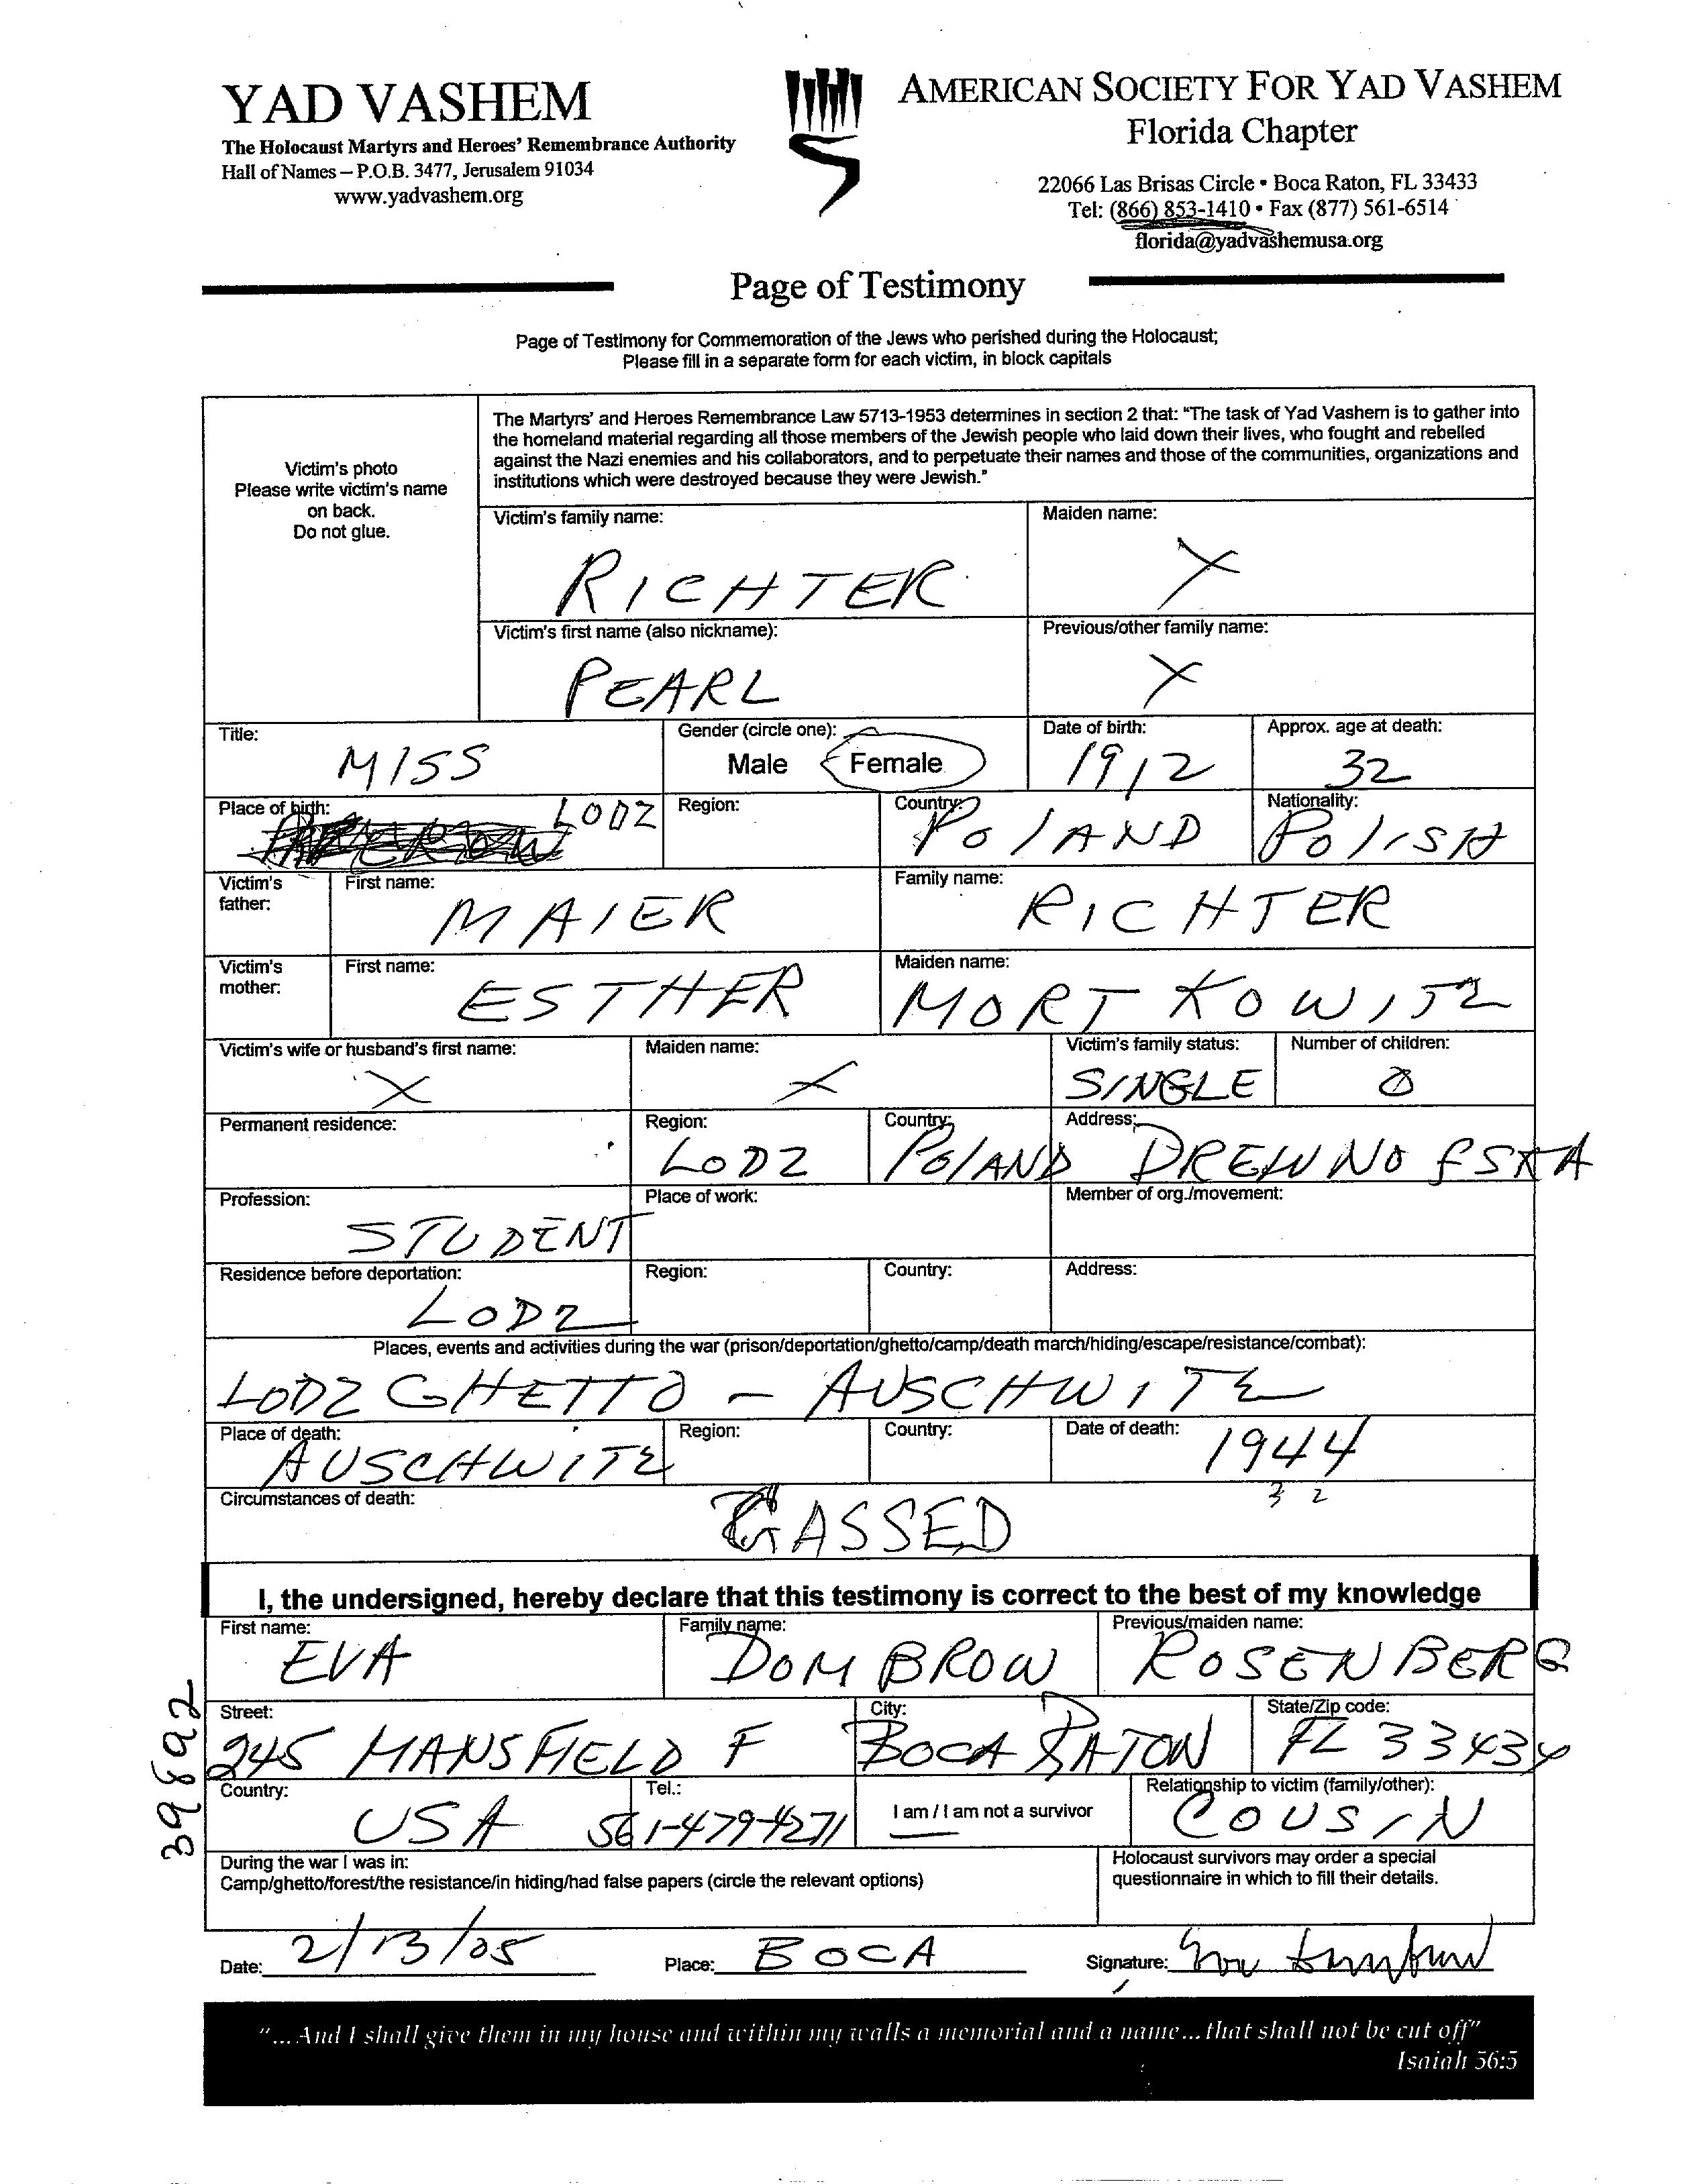 YAD VASHEM
The Holocaust Martyrs and Heroes' Remembrance Authority
Hall of Names – P.O.B. 3477, Jerusalem 91034
www.yadvashem.org
AMERICAN SOCIETY FOR YAD VASHEM
Florida Chapter
22066 Las Brisas Circle • Boca Raton, FL 33433
Tel: (866) 853-1410 • Fax (877) 561-6514
florida@yadvashemusa.org
Page of Testimony
Page of Testimony for Commemoration of the Jews who perished during the Holocaust;
Please fill in a separate form for each victim, in block capitals
Victim's photo
Please write victim's name
on back.
Do not glue.
The Martyrs' and Heroes Remembrance Law 5713-1953 determines in section 2 that: "The task of Yad Vashem is to gather into
the homeland material regarding all those members of the Jewish people who laid down their lives, who fought and rebelled
against the Nazi enemies and his collaborators, and to perpetuate their names and those of the communities, organizations and
institutions which were destroyed because they were Jewish."
Victim's family name: Maiden name:
RICHTER X
Victim's first name (also nickname): Previous/other family name:
PEARL X
Title: Gender (circle one): Date of birth: Approx. age at death:
MISS Male Female 1912 32
Place of birth: Region: Country: Nationality:
LODZ POlAND POlISH
Victim's father: First name: Family name:
MAIER RICHTER
Victim's mother: First name: Maiden name:
ESTHER MORTKOWITZ
Victim's wife or husband's first name: Maiden name: Victim's family status: Number of children:
X X SINGLE 0
Permanent residence: Region: Country: Address:
LODZ POlAND
Profession: Place of work: Member of org./movement:
STUDENT
Residence before deportation: Region: Country: Address:
LODZ
Places, events and activities during the war (prison/deportation/ghetto/camp/death march/hiding/escape/resistance/combat):
LODZ GHETTO – AUSCHWITZ
Place of death: Region: Country: Date of death:
AUSCHWITZ 1944
32
Circumstances of death:
GASSED
I, the undersigned, hereby declare that this testimony is correct to the best of my knowledge
First name: Family name: Previous/maiden name:
EVA DOMBROW ROSENBERG
Street: City: State/Zip code:
245 MANSFIELD F BOCA RATON FL 33434
Country: Tel.: I am / I am not a survivor Relationship to victim (family/other):
USA 561-479-4271 COUSIN
During the war I was in:
Camp/ghetto/forest/the resistance/in hiding/had false papers (circle the relevant options)
Holocaust survivors may order a special
questionnaire in which to fill their details.
39892
Date: 2/13/05 Place: BOCA Signature:
"...And I shall give them in my house and within my walls a memorial and a name...that shall not be cut off"
Isaiah 56:5